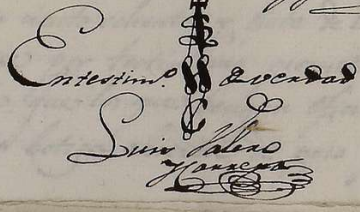 En testim.º de verdad
Luis Valero
y Carrera